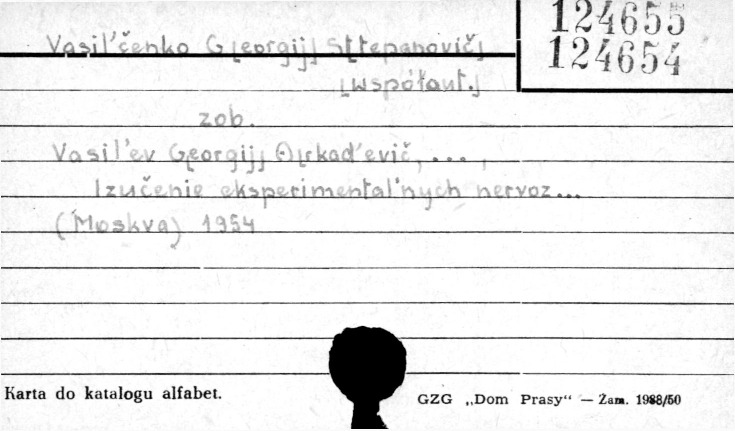 124655
124654
Vasil'čenko G[eorgij] S[tepanovič]
[współaut.]
zob.
Vasil'ev G[eorgij] A[rkad'evič, ... ,
Izučenie eksperimental'nych nervoz...
(Moskva) 1954
Karta do katalogu alfabet.
GZG „Dom Prasy“ — Zam. 1988/50